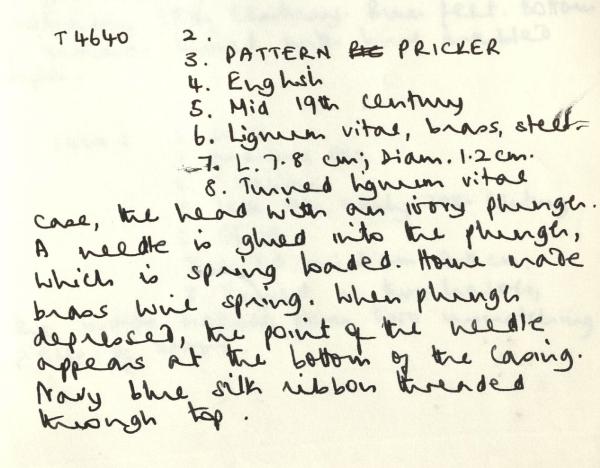 T4640 2.
3. PATTERN PRICKER
4. English
5. Mid 19th century
6. Lignum vitae, brass, steel
7. L. 7.8 cm; Diam. 1.2 cm.
8. Turned lignum vitae
case, the head with an ivory plunger.
A needle is glued into the plunger,
which is spring loaded. Home made
brass wire spring. When plunger
depressed, the point of the needle
appears at the bottom of the casing.
Navy blue silk ribbon threaded
through top.